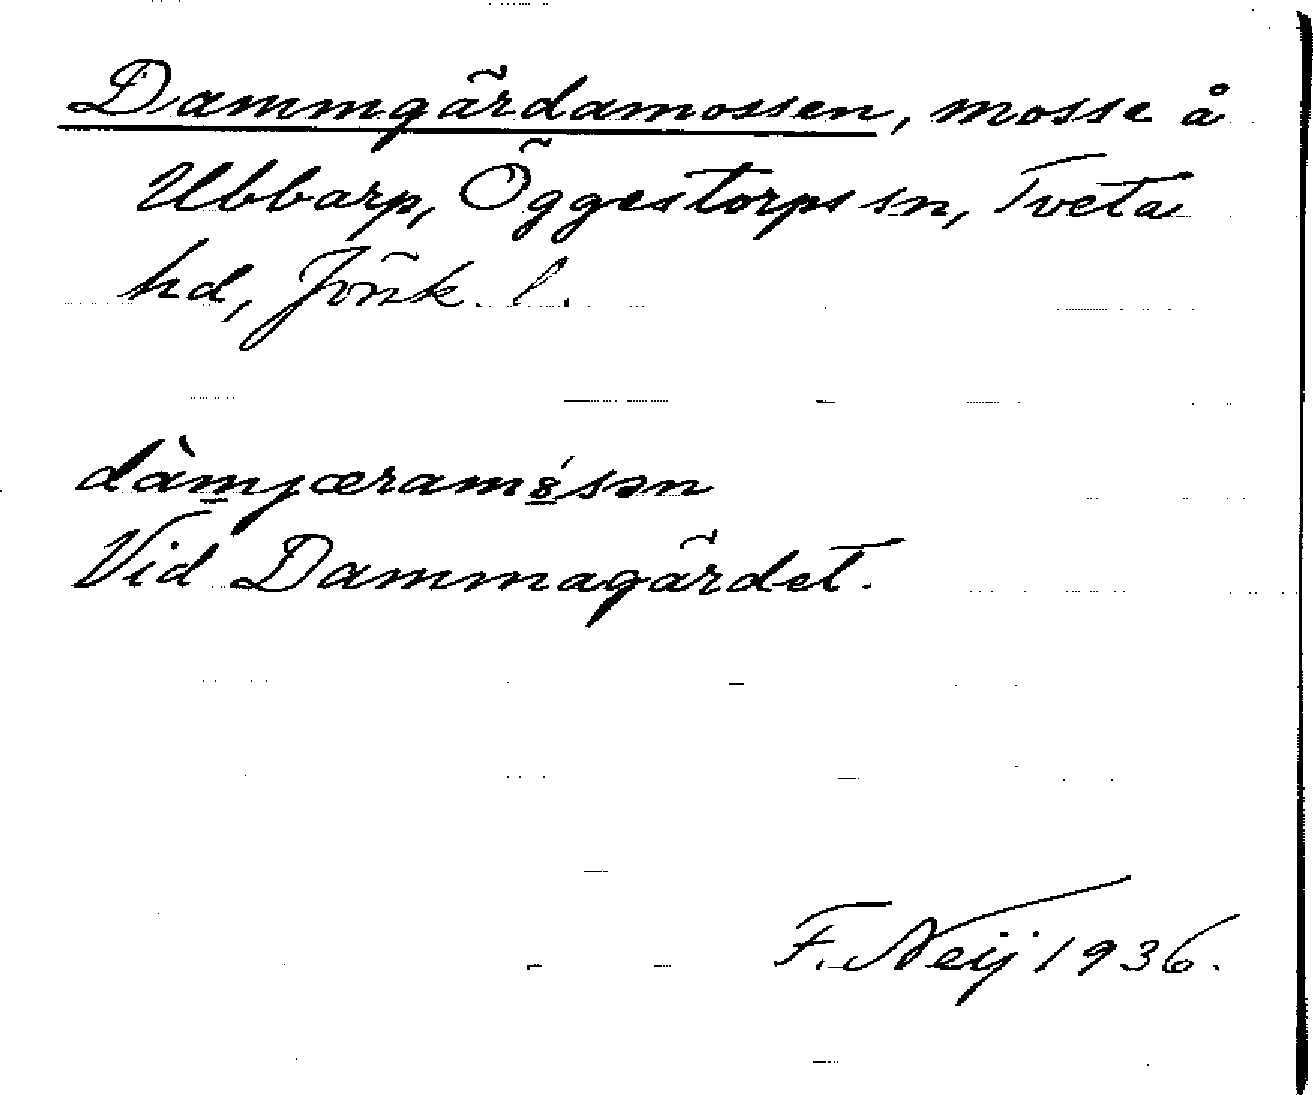 Dammgärdamossen, mosse å
Ubbarp, Öggestorps sn, Tveta
hd, Jönk. l.
dàmjæram8́sən
Vid Dammagärdet.
F. Neij 1936.